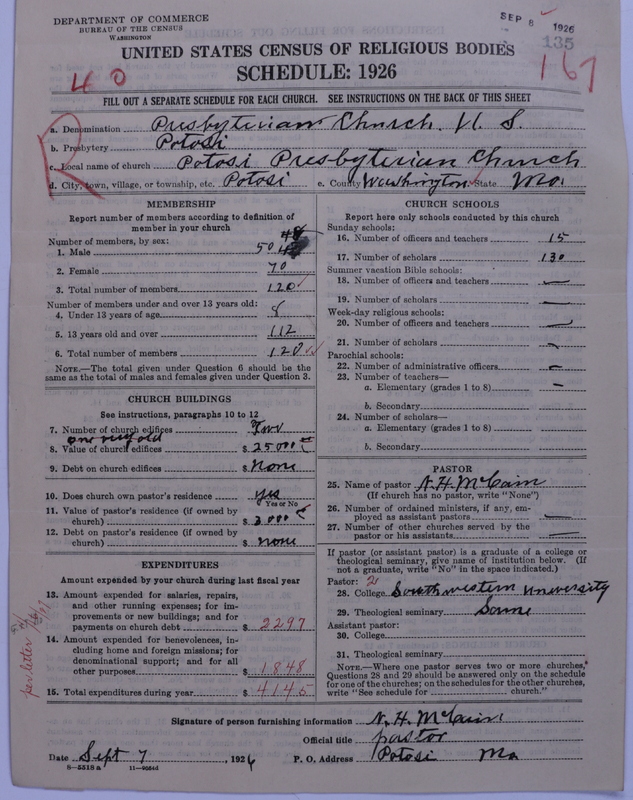 DEPARTMENT OF COMMERCE
BUREAU OF THE CENSUS
WASHINGTON
SEP 8 1926
135
UNITED STATES CENSUS OF RELIGIOUS BODIES
SCHEDULE: 1926
40
167
FILL OUT A SEPARATE SCHEDULE FOR EACH CHURCH. SEE INSTRUCTIONS ON THE BACK OF THIS SHEET
R
a. Denomination Presbyterian Church U. S.
b. Presbytery Potosi
c. Local name of church Potosi Presbyterian Church
d. City, town, village, or township, etc. Potosi e. County Washington State Mo.
MEMBERSHIP
Report number of members according to definition of
member in your church
Number of members, by sex:
48
1. Male 50
2. Female 70
3. Total number of members 120
Number of members under and over 13 years old:
4. Under 13 years of age 8
5. 13 years old and over 112
6. Total number of members 120
NOTE.—The total given under Question 6 should be the
same as the total of males and females given under Question 3.
CHURCH BUILDINGS
See instructions, paragraphs 10 to 12
7. Number of church edifices Two
8. Value of church edifices $ 25000
9. Debt on church edifices $ None
10. Does church own pastor's residence yes
Yes or No
11. Value of pastor's residence (if owned by
church) $ 3000
12. Debt on pastor's residence (if owned by
church) $ none
EXPENDITURES
Amount expended by your church during last fiscal year
13. Amount expended for salaries, repairs,
and other running expenses; for im-
provements or new buildings; and for
payments on church debt $ 2297
14. Amount expended for benevolences, in-
cluding home and foreign missions; for
denominational support; and for all
other purposes $ 1848
15. Total expenditures during year $ 4145
per letter
CHURCH SCHOOLS
Report here only schools conducted by this church
Sunday schools:
16. Number of officers and teachers 15
17. Number of scholars 130
Summer vacation Bible schools:
18. Number of officers and teachers —
19. Number of scholars —
Week-day religious schools:
20. Number of officers and teachers —
21. Number of scholars —
Parochial schools:
22. Number of administrative officers —
23. Number of teachers—
a. Elementary (grades 1 to 8) —
b. Secondary
24. Number of scholars—
a. Elementary (grades 1 to 8) —
b. Secondary
PASTOR
25. Name of pastor N. H. McCain
(If church has no pastor, write "None")
26. Number of ordained ministers, if any, em-
ployed as assistant pastors —
27. Number of other churches served by the
pastor or his assistants —
If pastor (or assistant pastor) is a graduate of a college or
theological seminary, give name of institution below. (If
not a graduate, write "No" in the space indicated.)
Pastor: 2
28. College Southwestern University
29. Theological seminary Same
Assistant pastor:
30. College
31. Theological seminary
NOTE.—Where one pastor serves two or more churches,
Questions 28 and 29 should be answered only on the schedule
for one of the churches; on the schedules for the other churches,
write "See schedule for church."
Signature of person furnishing information N. H. McCain
Official title pastor
Date Sept 7, 1926 P. O. Address Potosi Mo
8—5518 a 11—9554d